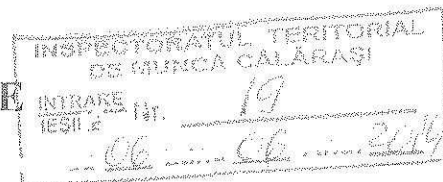 INSPECTORATUL TERITORIAL
DE MUNCA CALĂRAŞI
E
INTRARE
IEŞIRE Nr. 19
06 06